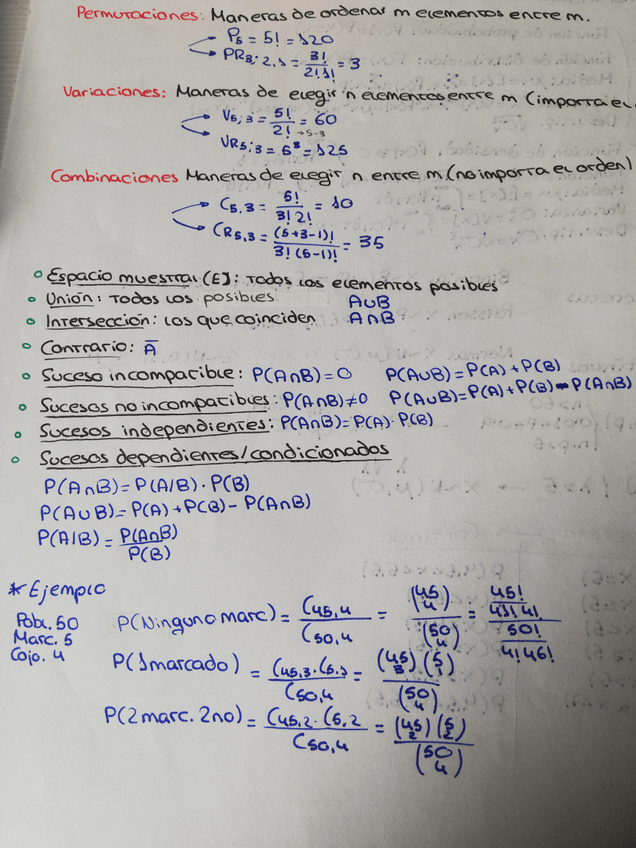 Permutaciones: Maneras de ordenar m elementos entre m.
P5 = 5! = 120
PR3;2,1 = 3!/2!1! = 3
Variaciones: Maneras de elegir n elementos entre m (importa el
V5,3 = 5!/2! = 60
→ 5-3
VR5;3 = 5³ = 125
Combinaciones Maneras de elegir n entre m (no importa el orden)
C5,3 = 5!/3!2! = 10
CR5,3 = (5+3-1)!/3!(5-1)! = 35
Espacio muestral (E): Todos los elementos posibles
Unión: Todos los posibles A∪B
Intersección: Los que coinciden A∩B
Contrario: A̅
Suceso incompatible: P(A∩B)=0 P(A∪B)=P(A)+P(B)
Sucesos no incompatibles: P(A∩B)≠0 P(A∪B)=P(A)+P(B)-P(A∩B)
Sucesos independientes: P(A∩B)=P(A)·P(B)
Sucesos dependientes/condicionados
P(A∩B)=P(A/B)·P(B)
P(A∪B)=P(A)+P(B)-P(A∩B)
P(A/B)=P(A∩B)/P(B)
* Ejemplo
Pobl. 50
Marc. 5
Cojo. 4
P(Ninguno marc)= C45,4/C50,4 = (45 4)/(50 4) = 45!/43!4! / 50!/4!46!
P(1 marcado) = C45,3·C5,1/C50,4 = (45 3)(5 1)/(50 4)
P(2 marc. 2no)= C45,2·C5,2/C50,4 = (45 2)(5 2)/(50 4)